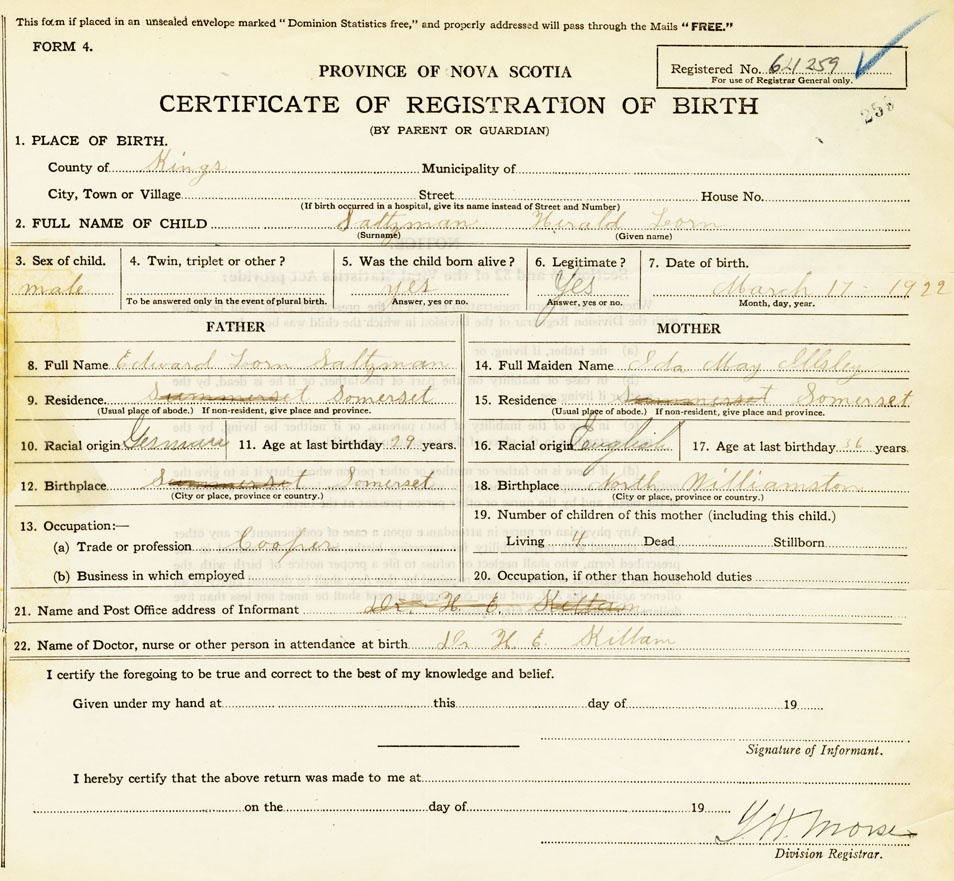 This form if placed in an unsealed envelope marked "Dominion Statistics free," and properly addressed will pass through the Mails "FREE."
FORM 4.
Registered No. 64259
For use of Registrar General only.
PROVINCE OF NOVA SCOTIA
258
CERTIFICATE OF REGISTRATION OF BIRTH
(BY PARENT OR GUARDIAN)
1. PLACE OF BIRTH.
County of Kings Municipality of
City, Town or Village Street House No.
(If birth occurred in a hospital, give its name instead of Street and Number)
2. FULL NAME OF CHILD Saltzman Herald Lorn
(Surname) (Given name)
3. Sex of child. 4. Twin, triplet or other? 5. Was the child born alive? 6. Legitimate? 7. Date of birth.
male yes Yes March 17 - 1922
To be answered only in the event of plural birth. Answer, yes or no. Answer, yes or no. Month, day, year.
FATHER MOTHER
8. Full Name Edward Lorn Saltzman 14. Full Maiden Name Ida May Illsley
9. Residence. Summerset Somerset 15. Residence Summerset Somerset
(Usual place of abode.) If non-resident, give place and province. (Usual place of abode.) If non-resident, give place and province.
10. Racial origin German 11. Age at last birthday 29 years. 16. Racial origin English 17. Age at last birthday 36 years.
12. Birthplace Summerset Somerset 18. Birthplace North Williamston
(City or place, province or country.) (City or place, province or country.)
13. Occupation:— 19. Number of children of this mother (including this child.)
(a) Trade or profession Cooper Living 4 Dead Stillborn
(b) Business in which employed 20. Occupation, if other than household duties
21. Name and Post Office address of Informant Dr. H. E. Killam
22. Name of Doctor, nurse or other person in attendance at birth Dr H E. Killam
I certify the foregoing to be true and correct to the best of my knowledge and belief.
Given under my hand at this day of 19
Signature of Informant.
I hereby certify that the above return was made to me at
on the day of 19
H. Morse
Division Registrar.